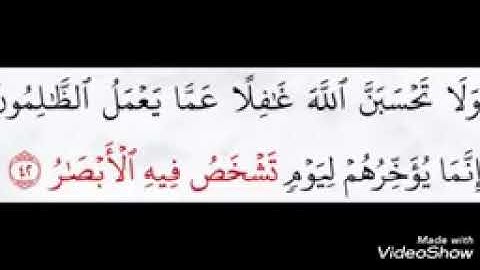 وَلَا تَحْسَبَنَّ ٱللَّهَ غَٰفِلًا عَمَّا يَعْمَلُ ٱلظَّٰلِمُونَ
إِنَّمَا يُؤَخِّرُهُمْ لِيَوْمٍ تَشْخَصُ فِيهِ ٱلْأَبْصَٰرُ ٤٢
Made with
VideoShow